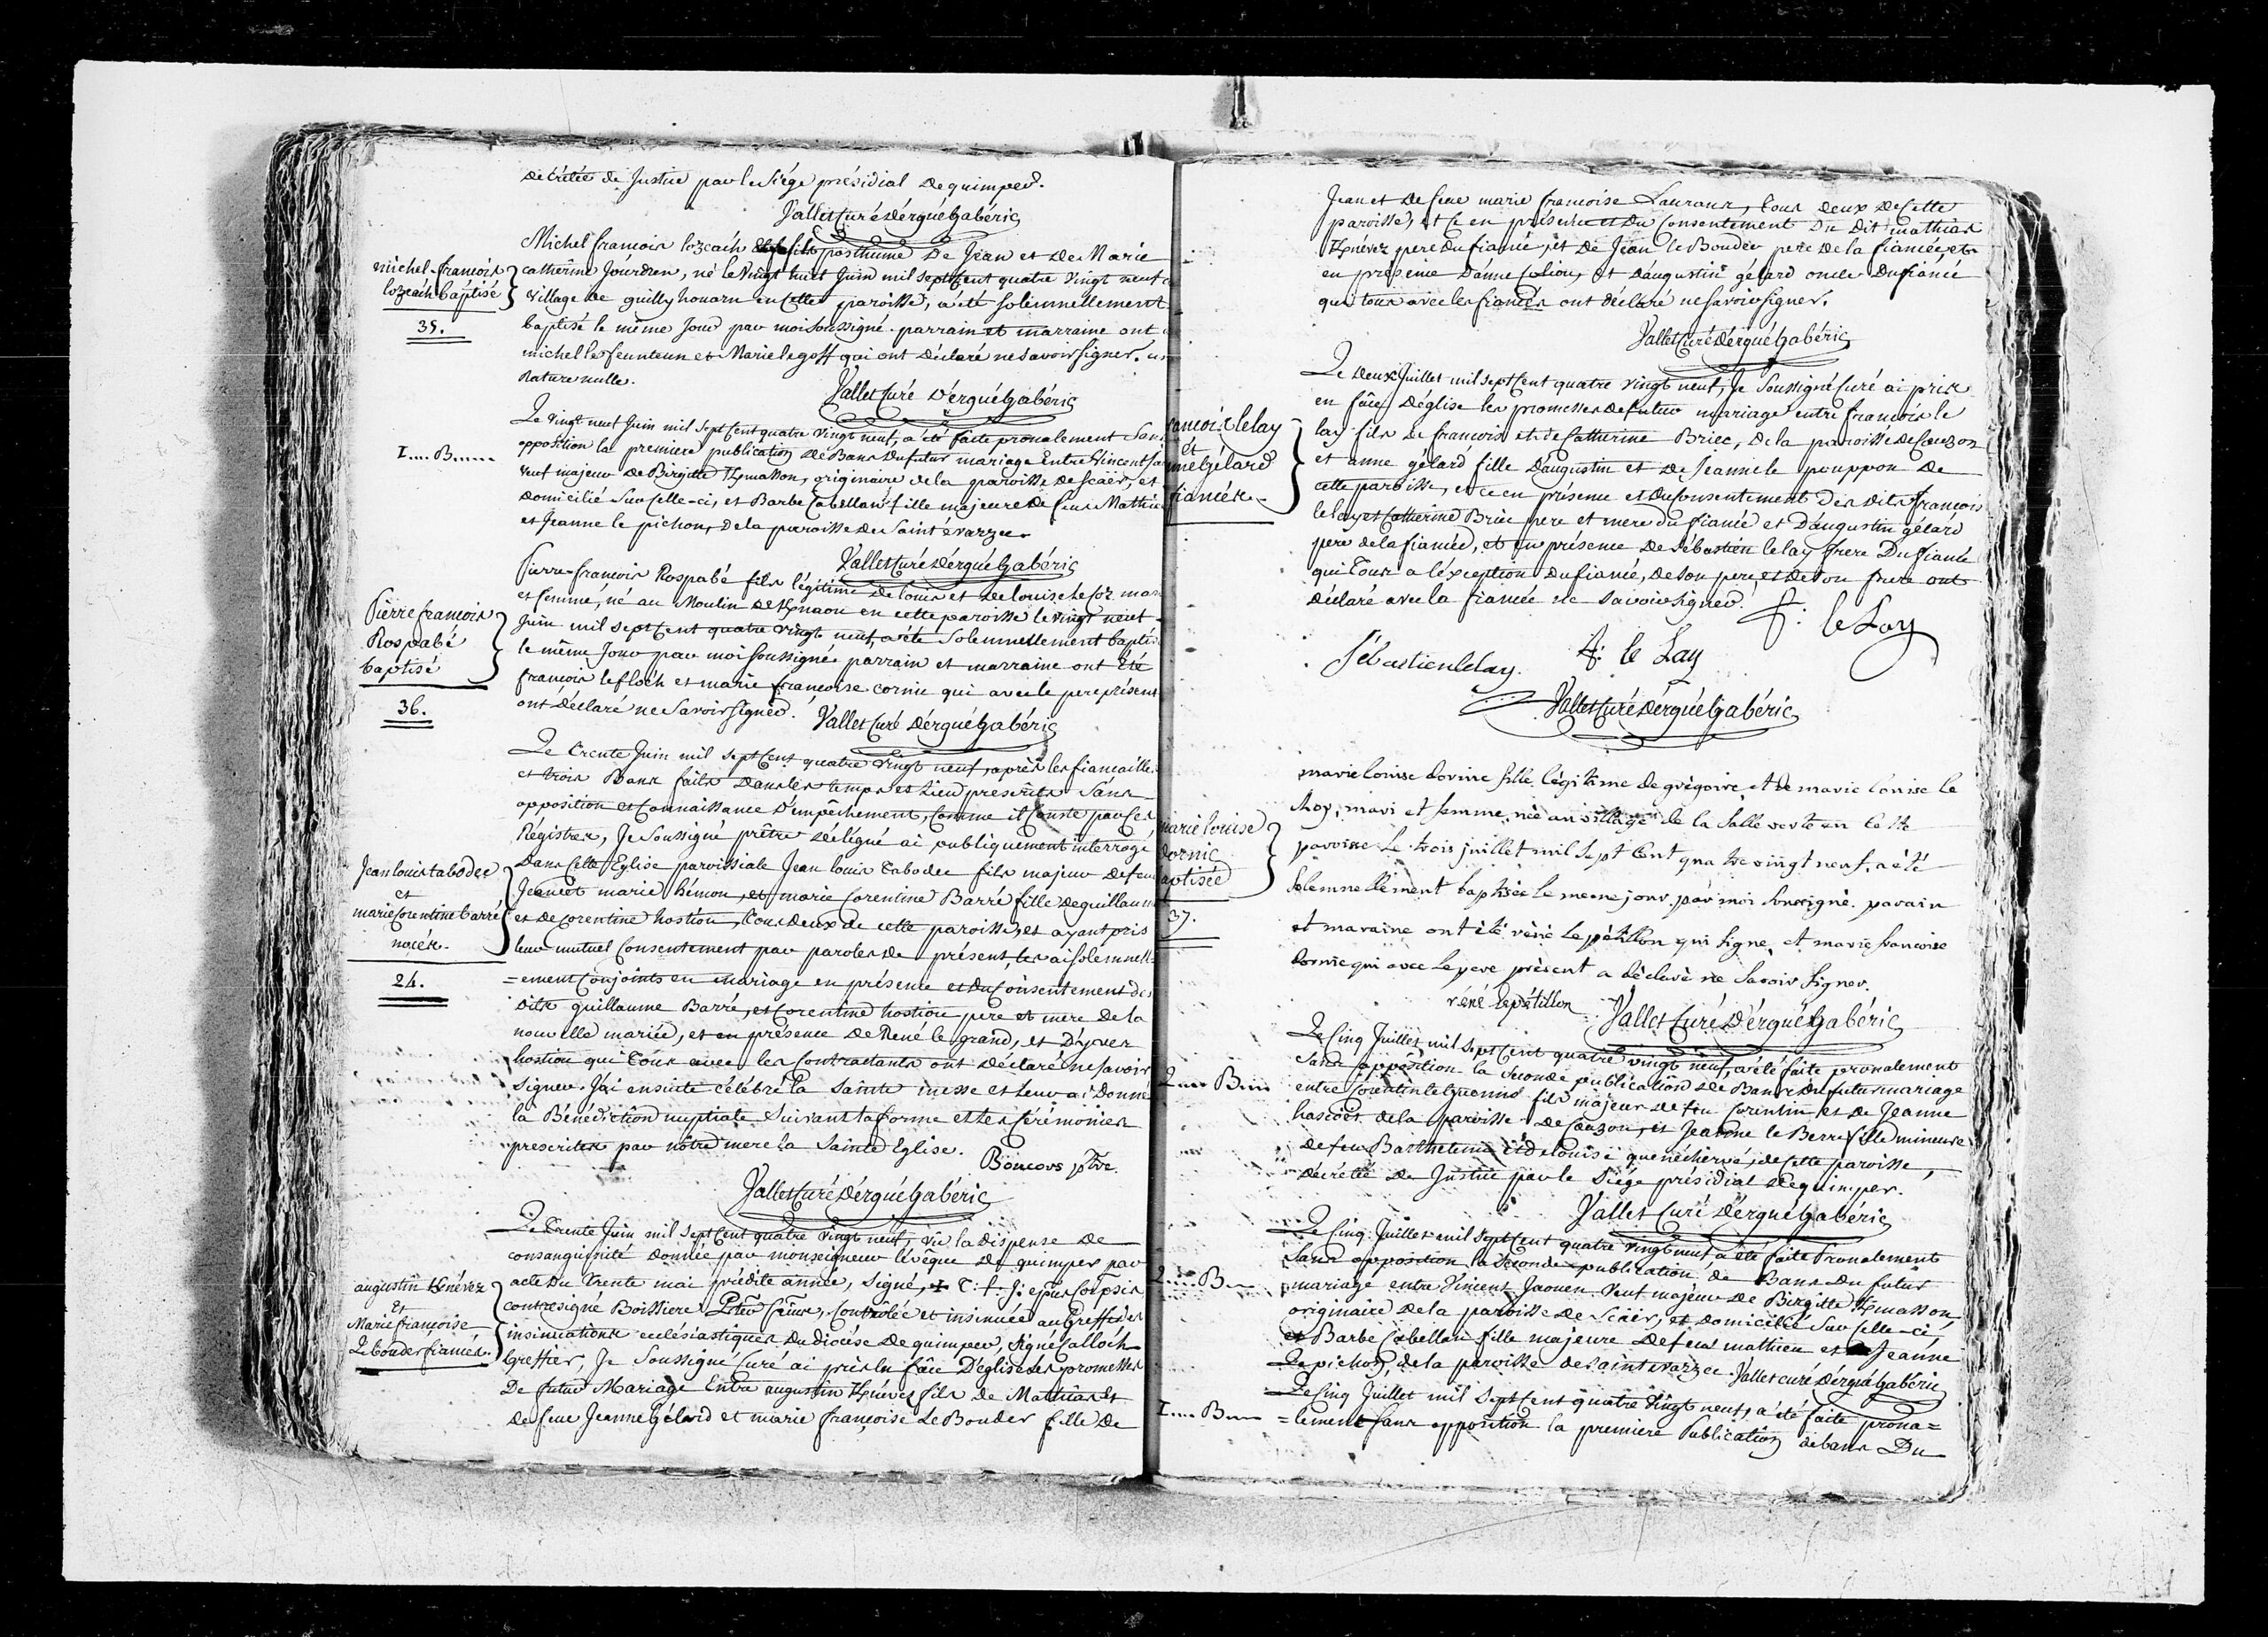 décrétée de Justice par le Siége présidial de quimper.
Vallet Curé d'érgué gabéric
michel-francois
lozeach baptisé
35.
Michel francois lozeach fils posthume De Jean et de Marie
catherine Jourdren, né le Vingt huit Juin mil sept Cent quatre Vingt neuf
village de guilly houarn en cette paroisse, a été solemnellement
baptisé le même Jour par moi soussigné. parrain et marraine ont
michel le feunteun et Marie le goff qui ont déclaré ne savoir signer.
Rature nulle.
Vallet Curé d'érgué gabéric
1.... B.....
Le vingt neuf Juin mil sept Cent quatre vingt neuf, a été faite pronalement Sans
opposition la premiere publication de Bans du futur mariage Entre Vincent
veuf majeur de Birgitte Kmasson, originaire de la paroisse de scaër, et
domicilié Sur celle-ci, et Barbe Cabellan fille majeure de feu Mathieu
et Jeanne le pichon, de la paroisse de Saint évarzec.
Vallet Curé d'érgué gabéric
Pierre francois
Rospabé
baptisé
36.
Pierre-francois Rospabé fils légitime de louis et de louise le
et femme, né au Moulin de Knaou en cette paroisse le vingt neuf
Juin mil sept Cent quatre vingt neuf, a été Solemnellement baptisé
le même Jour par moi Soussigné. parrain et marraine ont Eté
francois le floc'h et marie francoise cornic qui avec le pere présent
ont déclaré ne Savoir signer.
Vallet Curé d'érgué gabéric
Jean louis tabodec
et
marie Corentine barré
nocés.
24.
Le trente Juin mil sept Cent quatre vingt neuf, après les fiancailles
et trois Bans faits Dans les temps et Lieu prescrits Sans
opposition et Connaissance D'empêchement, Comme il Conste par Ces
Régistres, Je Soussigné prêtre délégué ai publiquement interrogé
Dans Cette Eglise paroissiale Jean louis tabodec fils majeur de feu
Jean et marie hémon, et marie Corentine Barré fille de guillaume
et de corentine hostiou, tous deux de cette paroisse, et ayant pris
leur mutuel Consentement par paroles de présent, les ai solemnell-
=ement Conjoints en mariage en présence et du Consentement des
dits guillaume Barré, et Corentine hostiou pere et mere De la
nouvelle mariée, et en présence de René le grand, et D'yves
hostiou qui tous avec les Contractants ont déclaré ne savoir
signer. J'ai ensuite célébré la Sainte messe et leur ai Donné
la Bénédiction nuptiale Suivant la forme et les Cérémonies
prescrites par nôtre mere la Sainte Eglise.
ptre.
Vallet Curé d'érgué gabéric
augustin Knévez
Et
Marie françoise
Le bouder fiancés.
Le trente Juin mil sept Cent quatre vingt neuf, vû la dispense de
consanguinité donnée par monseigneur l'évêque de quimper par
acte Du trente mai prédite année, Signé, + T: f: J:
contresigné Boissiere, Controlée et insinuée au Greffe des
insinuations ecclésiastiques du diocése de quimper, Signé Calloch
Greffier, Je Soussigné Curé ai pris en face D'église les promesses
De futur Mariage Entre augustin Knévez fils de Mathias et
de feue Jeanne Gélard et marie françoise Le Bouder fille De
Jean et de feue marie francoise Laurans, tous deux de Cette
paroisse, et ce en présence et Du Consentement Du dit mathias
Knévez pere du fiancé, et De Jean le Bouder pere de la fiancée, et
en présence d'anne et D'augustin gélard oncle Du fiancé
qui tous avec les fiancés ont déclaré ne savoir signer.
Vallet Curé d'érgué gabéric
francois le lay
et
anne gélard
fiancés.
Le deux Juillet mil sept Cent quatre vingt neuf, Je Soussigné Curé ai pris
en face D'église les promesses de futur mariage entre francois le
lay fils de francois et de Catherine Briec, de la paroisse de Cuzon
et anne gélard fille D'augustin et de Jeanne le pouppon de
cette paroisse, et ce en présence et du Consentement Des dits francois
le lay et Catherine Briec pere et mere du fiancé et D'augustin gélard
pere de la fiancée, et en présence de Sébastien le lay frere Du fiancé
qui tous a l'éxception du fiancé, de son pere, et de son frere ont
déclaré avec la fiancée ne Savoir signer.
f: le Lay
Sébastien le lay.
f: le Lay
Vallet Curé d'érgué gabéric
marie louise
cornic
baptisée
37.
marie louise cornic fille légitime de grégoire et de marie louise le
Roy, mari et femme, née au village de la Salle verte en cette
paroisse Le trois juillet mil sept Cent quatre vingt neuf, a été
Solemnellement baptisée le meme jour par moi Soussigné. parain
et maraine ont été réné Le pétillon qui signe, et marie francoise
Cornic qui avec Le pere présent a déclaré ne Savoir Signer.
réné Le pétillon
Vallet Curé d'érgué gabéric
2.... B....
Le Cinq Juillet mil sept Cent quatre vingt neuf, a été faite pronalement
Sans opposition la Seconde publication de Bans du futur mariage
entre Corentin le Guenno fils majeur de feu Corentin et de Jeanne
hascoët de la paroisse de Cuzon, et Jeanne le Berre fille mineure
de feu Barthelemi et de louise quenéchervé, de cette paroisse,
décrétée de Justice par le Siége présidial de quimper.
Vallet Curé d'érgué gabéric
2.... B....
Le Cinq Juillet mil sept Cent quatre vingt neuf, a été faite Pronalement
Sans opposition la Seconde publication de Bans du futur
mariage entre Vincent Jaouen Veuf majeur de Birgitte Kmasson
originaire de la paroisse de Scaër, et domicilié Sur celle-ci,
et Barbe Cabellan fille majeure de feu mathieu et Jeanne
Le pichon, de la paroisse de saint évarzec. Vallet curé d'érgué gabéric
1.... B....
Le Cinq Juillet mil sept Cent quatre Vingt neuf, a été faite prona=
=lement sans opposition la premiere Publication de bans Du